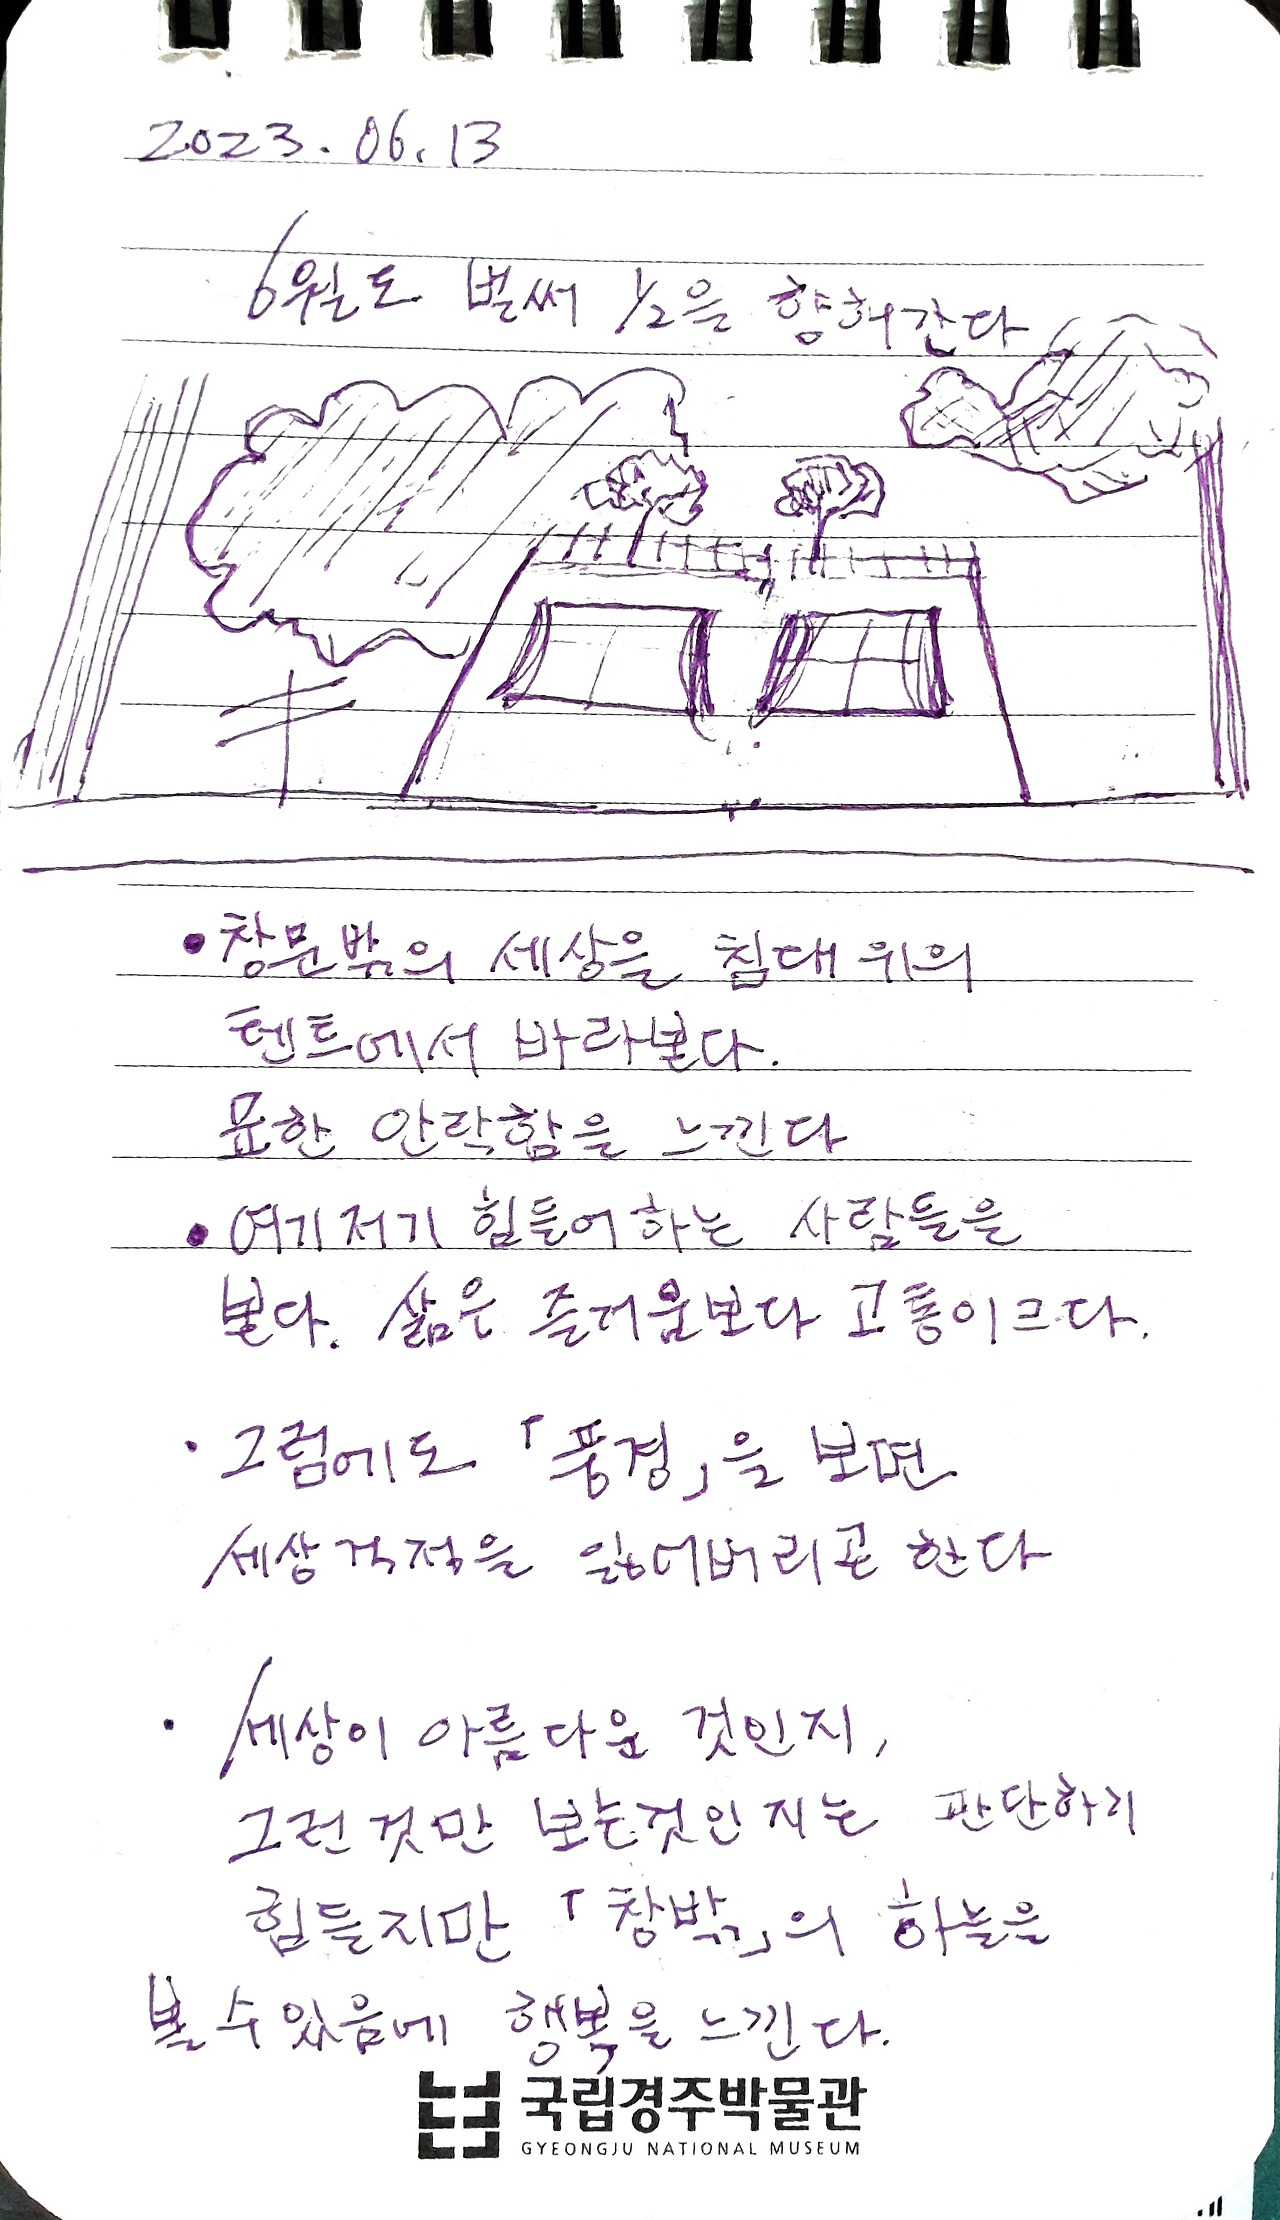 2023. 06. 13
6월도 벌써 1/2을 향해간다
• 창문밖의 세상을 침대 위의
텐트에서 바라본다.
묘한 안락함을 느낀다
• 여기저기 힘들어하는 사람들을
본다. 삶은 즐거움보다 고통이크다.
· 그럼에도 「풍경」을 보면
세상걱정을 잃어버리곤 한다
· 세상이 아름다운 것인지,
그런것만 보는것인지는 판단하기
힘들지만 「창밖」의 하늘을
볼 수 있음에 행복을 느낀다.
국립경주박물관
GYEONGJU NATIONAL MUSEUM